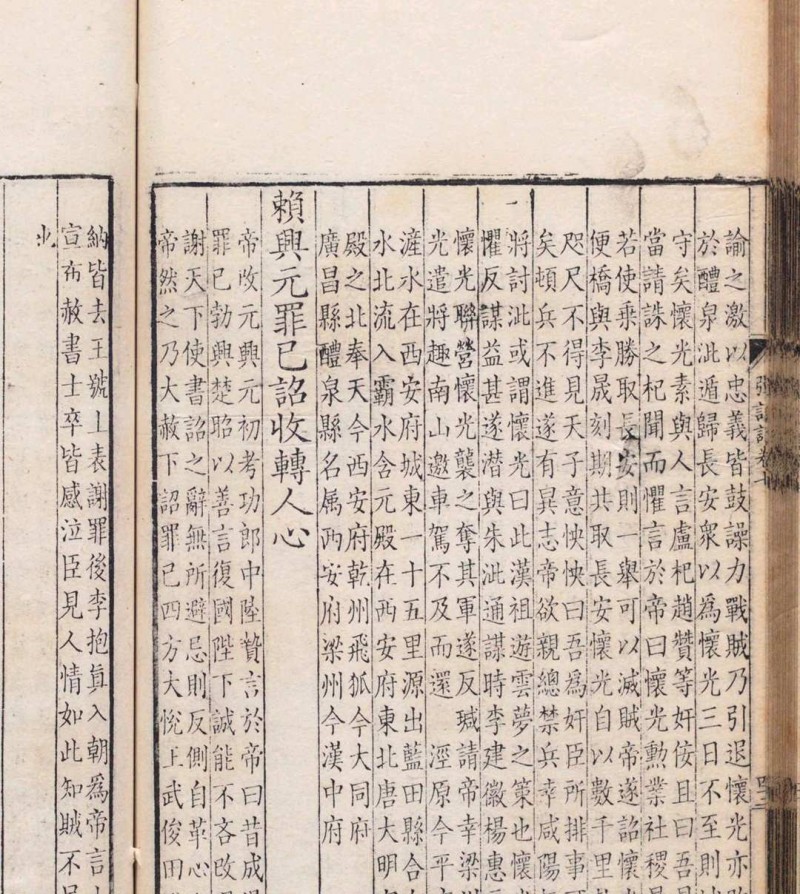 諭之激以忠義皆鼓譟力戰賊乃引退懷光亦
於醴泉泚遁歸長安衆以爲懷光三日不至則
守矣懷光素與人言盧杞趙贊等奸佞且曰吾
當請誅之杞聞而懼言於帝曰懷光勳業社稷
若使乘勝取長安則一舉可以滅賊帝遂詔懷
便橋與李晟刻期共取長安懷光自以數千里
咫尺不得見天子意怏怏曰吾爲奸臣所排事
矣頓兵不進遂有異志帝欲親總禁兵幸咸陽
將討泚或謂懷光曰此漢祖遊雲夢之策也懷
懼反謀益甚遂潜與朱泚通謀時李建徽楊惠元
懷光聯營懷光襲之奪其軍遂反瑊請帝幸梁
光遣將趣南山邀車駕不及而還 涇原今平
滻水在西安府城東一十五里源出藍田縣合
水北流入霸水含元殿在西安府東北唐大明
殿之北奉天今西安府乾州飛狐今大同府
廣昌縣醴泉縣名属西安府梁州今漢中府
賴興元罪已詔收轉人心
帝改元興元初考功郎中陸贄言於帝曰昔成
罪已勃興楚昭以善言復國陛下誠能不吝改
謝天下使書詔之辭無所避忌則反側自革心
帝然之乃大赦下詔罪已四方大悅王武俊田
納皆去王號上表謝罪後李抱真入朝爲帝言
宣布赦書士卒皆感泣臣見人情如此知賊不